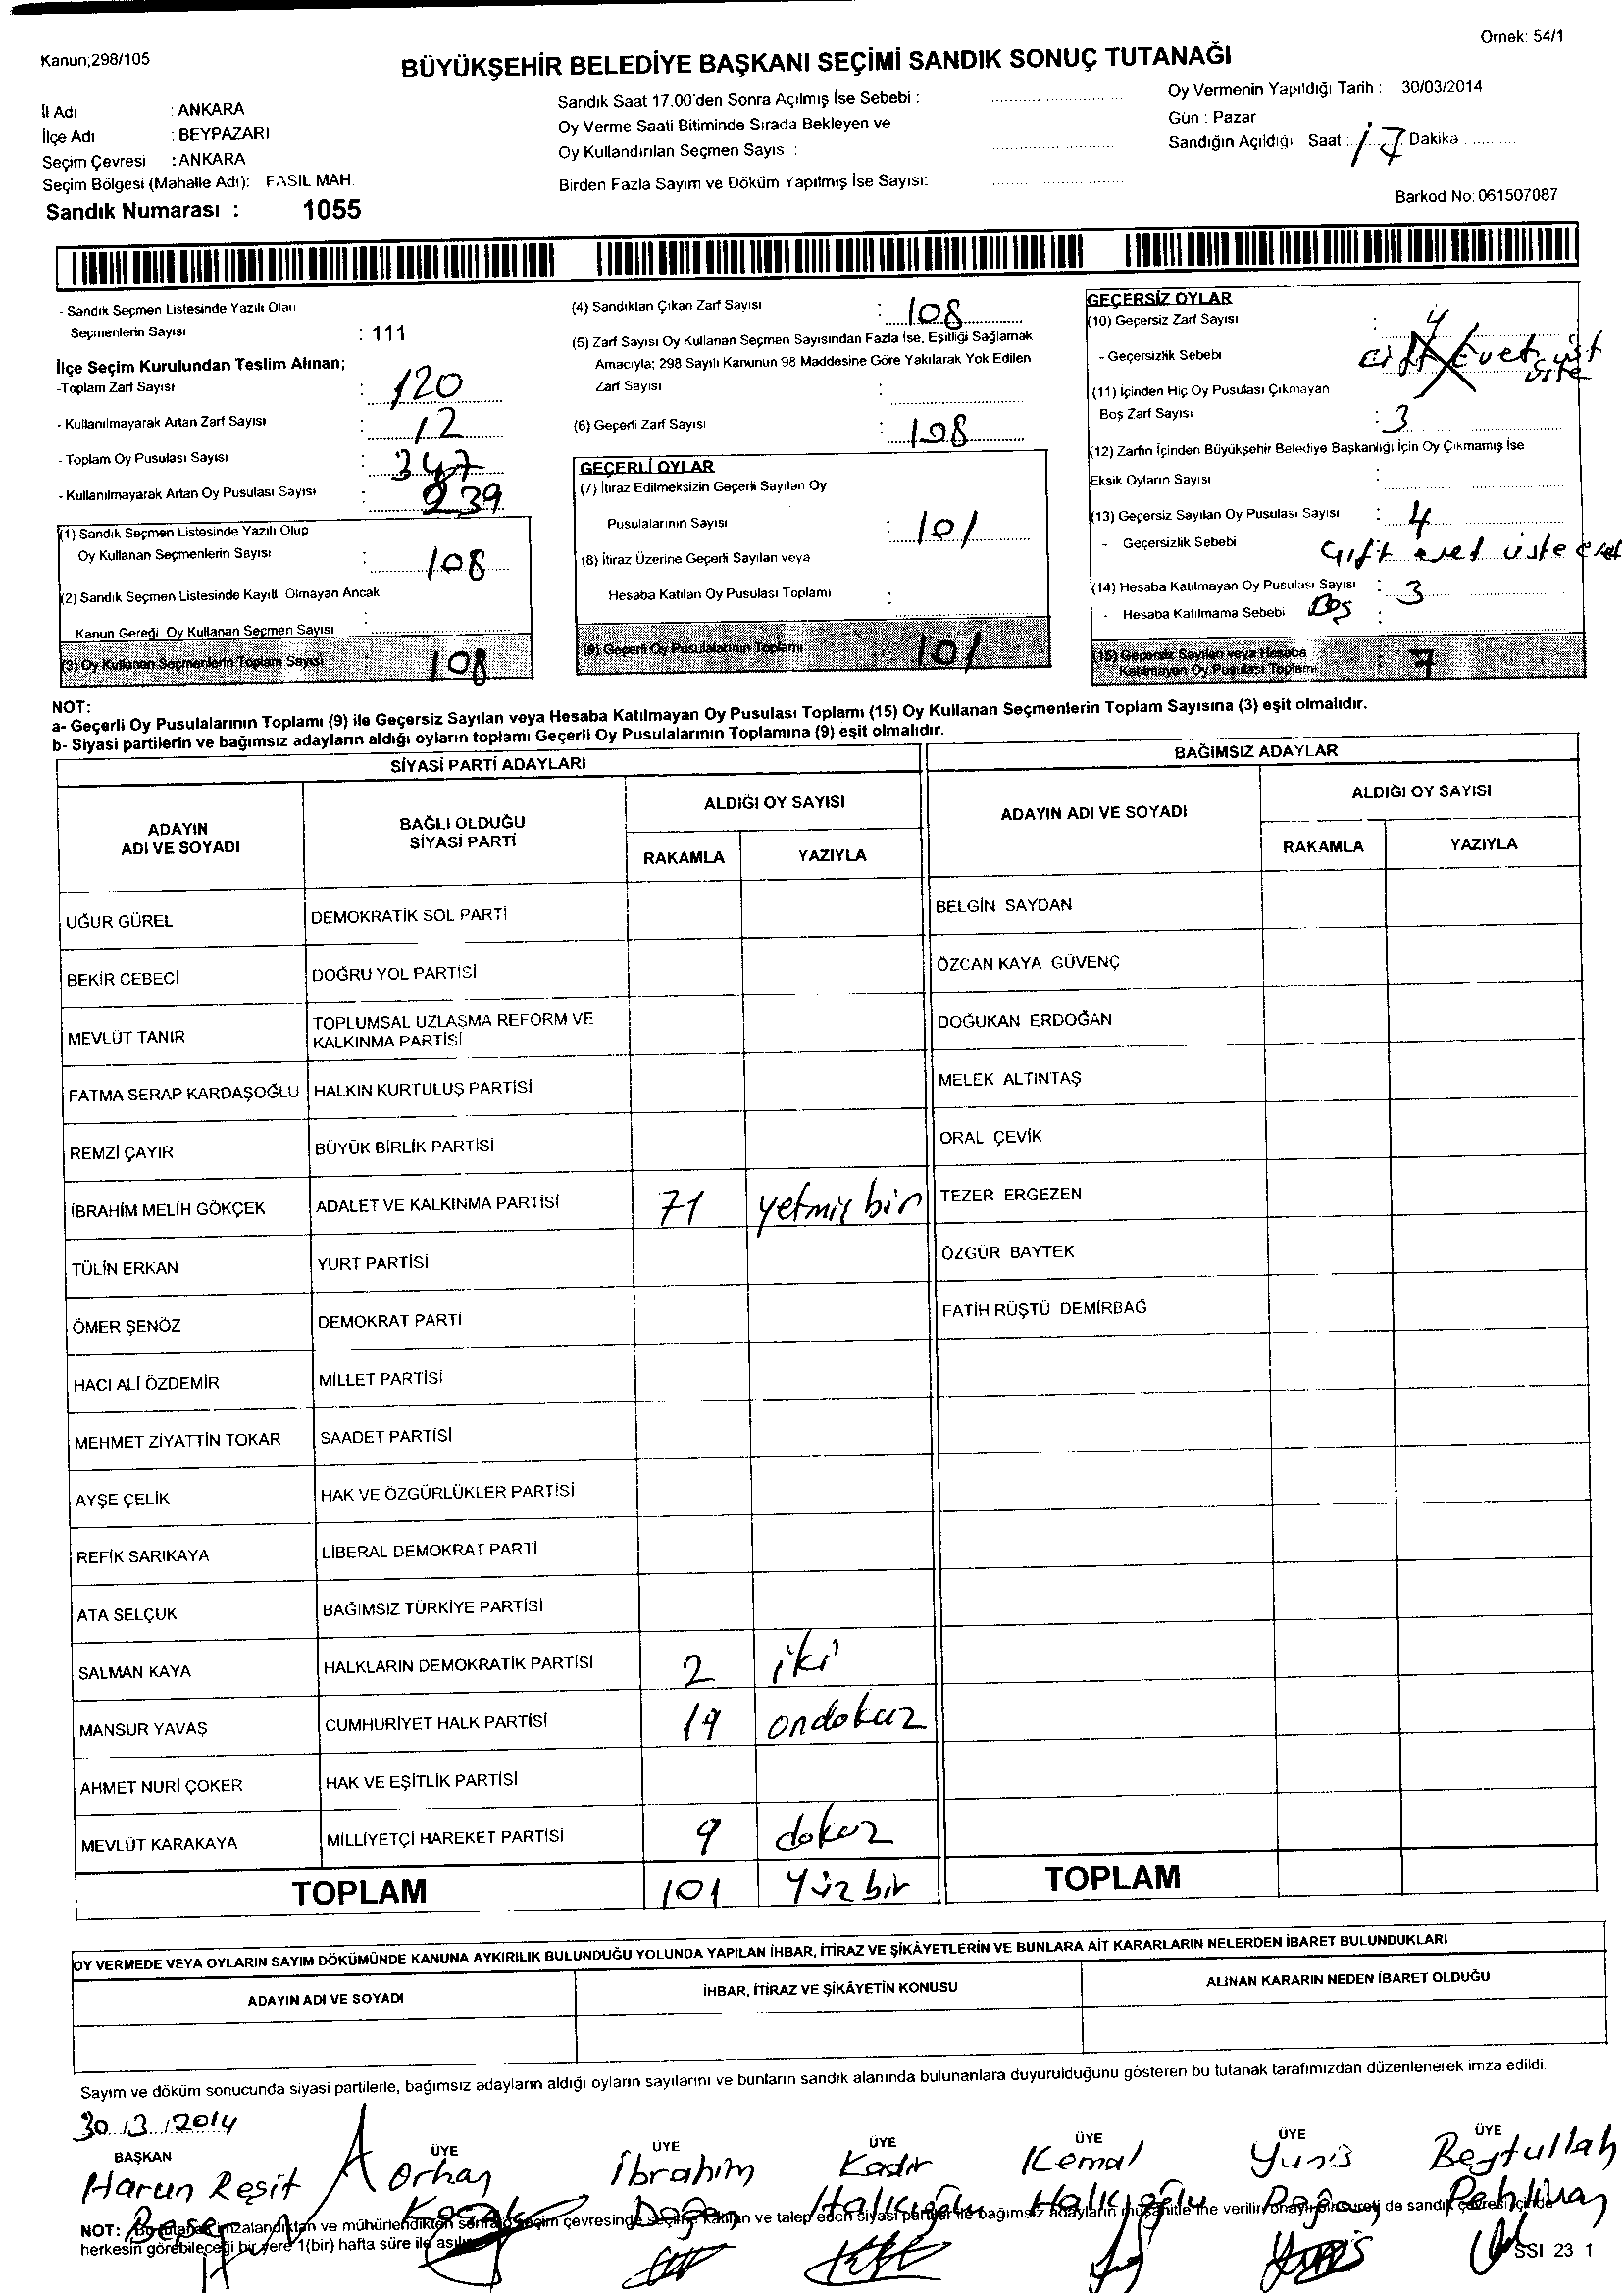 Örnek: 54/1
Kanun;298/105
BÜYÜKŞEHİR BELEDİYE BAŞKANI SEÇİMİ SANDIK SONUÇ TUTANAĞI
İl Adı : ANKARA
İlçe Adı : BEYPAZARI
Seçim Çevresi : ANKARA
Seçim Bölgesi (Mahalle Adı): FASIL MAH.
Sandık Numarası : 1055
Sandık Saat 17.00'den Sonra Açılmış İse Sebebi :
Oy Verme Saati Bitiminde Sırada Bekleyen ve
Oy Kullandırılan Seçmen Sayısı :
Birden Fazla Sayım ve Döküm Yapılmış İse Sayısı:
Oy Vermenin Yapıldığı Tarih : 30/03/2014
Gün : Pazar
Sandığın Açıldığı Saat : 17 Dakika
Barkod No: 061507087
- Sandık Seçmen Listesinde Yazılı Olan
Seçmenlerin Sayısı : 111
İlçe Seçim Kurulundan Teslim Alınan;
-Toplam Zarf Sayısı : 120
- Kullanılmayarak Artan Zarf Sayısı : 12
- Toplam Oy Pusulası Sayısı : 347
- Kullanılmayarak Artan Oy Pusulası Sayısı : 239
(1) Sandık Seçmen Listesinde Yazılı Olup
Oy Kullanan Seçmenlerin Sayısı : 108
(2) Sandık Seçmen Listesinde Kayıtlı Olmayan Ancak
Kanun Gereği Oy Kullanan Seçmen Sayısı :
(3) Oy Kullanan Seçmenlerin Toplam Sayısı : 108
(4) Sandıktan Çıkan Zarf Sayısı : 108
(5) Zarf Sayısı Oy Kullanan Seçmen Sayısından Fazla İse, Eşitliği Sağlamak
Amacıyla; 298 Sayılı Kanunun 98 Maddesine Göre Yakılarak Yok Edilen
Zarf Sayısı :
(6) Geçerli Zarf Sayısı : 108
GEÇERLİ OYLAR
(7) İtiraz Edilmeksizin Geçerli Sayılan Oy
Pusulalarının Sayısı : 101
(8) İtiraz Üzerine Geçerli Sayılan veya
Hesaba Katılan Oy Pusulası Toplamı :
(9) Geçerli Oy Pusulalarının Toplamı : 101
GEÇERSİZ OYLAR
(10) Geçersiz Zarf Sayısı : 4
- Geçersizlik Sebebi çift Evet üst üste
(11) İçinden Hiç Oy Pusulası Çıkmayan
Boş Zarf Sayısı : 3
(12) Zarfın İçinden Büyükşehir Belediye Başkanlığı İçin Oy Çıkmamış İse
Eksik Oyların Sayısı :
(13) Geçersiz Sayılan Oy Pusulası Sayısı : 4
- Geçersizlik Sebebi çift evet üste evet
(14) Hesaba Katılmayan Oy Pusulası Sayısı : 3
- Hesaba Katılmama Sebebi : Boş
(15) Geçersiz Sayılan veya Hesaba
Katılmayan Oy Pusulası Toplamı : 7
NOT:
a- Geçerli Oy Pusulalarının Toplamı (9) ile Geçersiz Sayılan veya Hesaba Katılmayan Oy Pusulası Toplamı (15) Oy Kullanan Seçmenlerin Toplam Sayısına (3) eşit olmalıdır.
b- Siyasi partilerin ve bağımsız adayların aldığı oyların toplamı Geçerli Oy Pusulalarının Toplamına (9) eşit olmalıdır.
SİYASİ PARTİ ADAYLARI
BAĞIMSIZ ADAYLAR
ADAYIN ADI VE SOYADI
BAĞLI OLDUĞU SİYASİ PARTİ
ALDIĞI OY SAYISI
RAKAMLA YAZIYLA
ADAYIN ADI VE SOYADI
ALDIĞI OY SAYISI
RAKAMLA YAZIYLA
UĞUR GÜREL DEMOKRATİK SOL PARTİ BELGİN SAYDAN
BEKİR CEBECİ DOĞRU YOL PARTİSİ ÖZCAN KAYA GÜVENÇ
MEVLÜT TANIR TOPLUMSAL UZLAŞMA REFORM VE KALKINMA PARTİSİ DOĞUKAN ERDOĞAN
FATMA SERAP KARDAŞOĞLU HALKIN KURTULUŞ PARTİSİ MELEK ALTINTAŞ
REMZİ ÇAYIR BÜYÜK BİRLİK PARTİSİ ORAL ÇEVİK
İBRAHİM MELİH GÖKÇEK ADALET VE KALKINMA PARTİSİ 71 yetmiş bir TEZER ERGEZEN
TÜLİN ERKAN YURT PARTİSİ ÖZGÜR BAYTEK
ÖMER ŞENÖZ DEMOKRAT PARTİ FATİH RÜŞTÜ DEMİRBAĞ
HACI ALİ ÖZDEMİR MİLLET PARTİSİ
MEHMET ZİYATTİN TOKAR SAADET PARTİSİ
AYŞE ÇELİK HAK VE ÖZGÜRLÜKLER PARTİSİ
REFİK SARIKAYA LİBERAL DEMOKRAT PARTİ
ATA SELÇUK BAĞIMSIZ TÜRKİYE PARTİSİ
SALMAN KAYA HALKLARIN DEMOKRATİK PARTİSİ 2 iki
MANSUR YAVAŞ CUMHURİYET HALK PARTİSİ 19 ondokuz
AHMET NURİ ÇOKER HAK VE EŞİTLİK PARTİSİ
MEVLÜT KARAKAYA MİLLİYETÇİ HAREKET PARTİSİ 9 dokuz
TOPLAM 101 Yüz bir TOPLAM
OY VERMEDE VEYA OYLARIN SAYIM DÖKÜMÜNDE KANUNA AYKIRILIK BULUNDUĞU YOLUNDA YAPILAN İHBAR, İTİRAZ VE ŞİKÂYETLERİN VE BUNLARA AİT KARARLARIN NELERDEN İBARET BULUNDUKLARI
ADAYIN ADI VE SOYADI İHBAR, İTİRAZ VE ŞİKÂYETİN KONUSU ALINAN KARARIN NEDEN İBARET OLDUĞU
Sayım ve döküm sonucunda siyasi partilerle, bağımsız adayların aldığı oyların sayılarını ve bunların sandık alanında bulunanlara duyurulduğunu gösteren bu tutanak tarafımızdan düzenlenerek imza edildi.
30/3/2014
BAŞKAN ÜYE ÜYE ÜYE ÜYE ÜYE ÜYE
Harun Reşit Orhan İbrahim Kadir Kemal Yunis Beytullah
Doğan Halıcıoğlu Halıcıoğlu Doğan Pehlivan
NOT: Bu tutanak imzalandıktan ve mühürlendikten sonra seçim çevresinde seçime katılan ve talep eden siyasi partiler ile bağımsız adayların müşahitlerine verilir, onaylı bir sureti de sandık çevresi içinde
herkesin görebileceği bir yere 1(bir) hafta süre ile asılır.
SSI 23 1